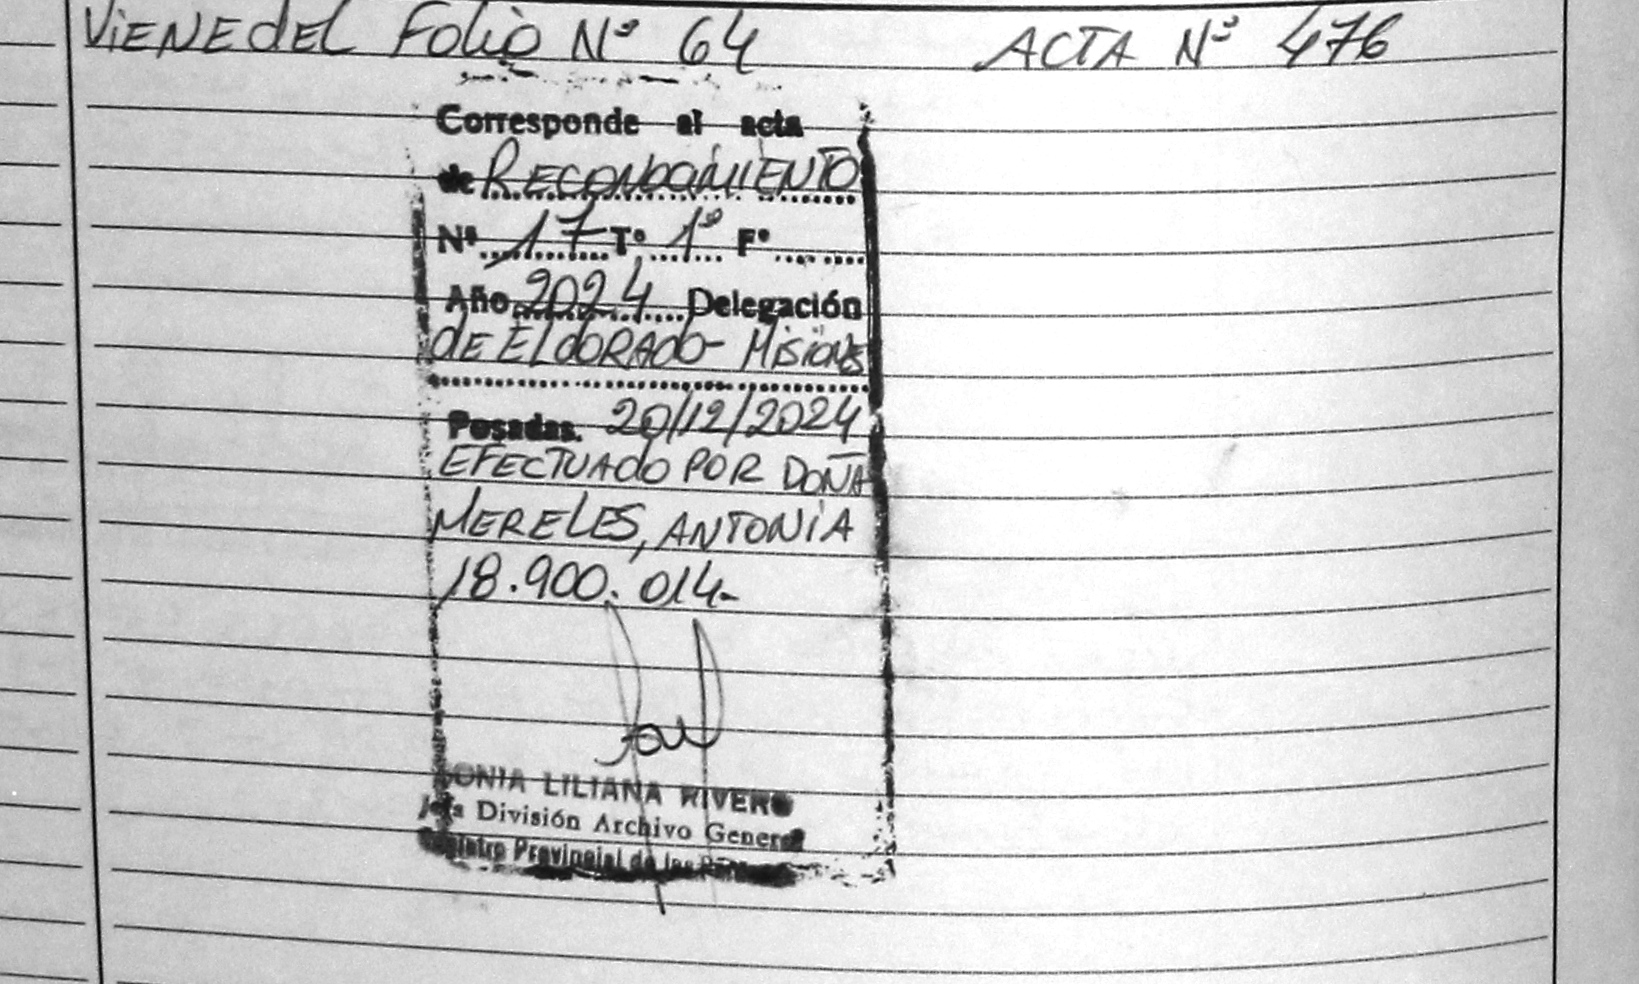 ViENE dEL FoLio Nº 64 ACTA Nº 476
Corresponde al acta
de RECONOCiMiENTO
Nº 17 Tº 1º Fº
Año 2024 Delegación
dE ELdORADO - MiSiONES
Posadas. 20/12/2024
EFECTUAdO POR DOÑA
MERELES, ANTONiA
18.900.014-
SONIA LILIANA RIVERO
Jefa División Archivo General
Registro Provincial de las Personas